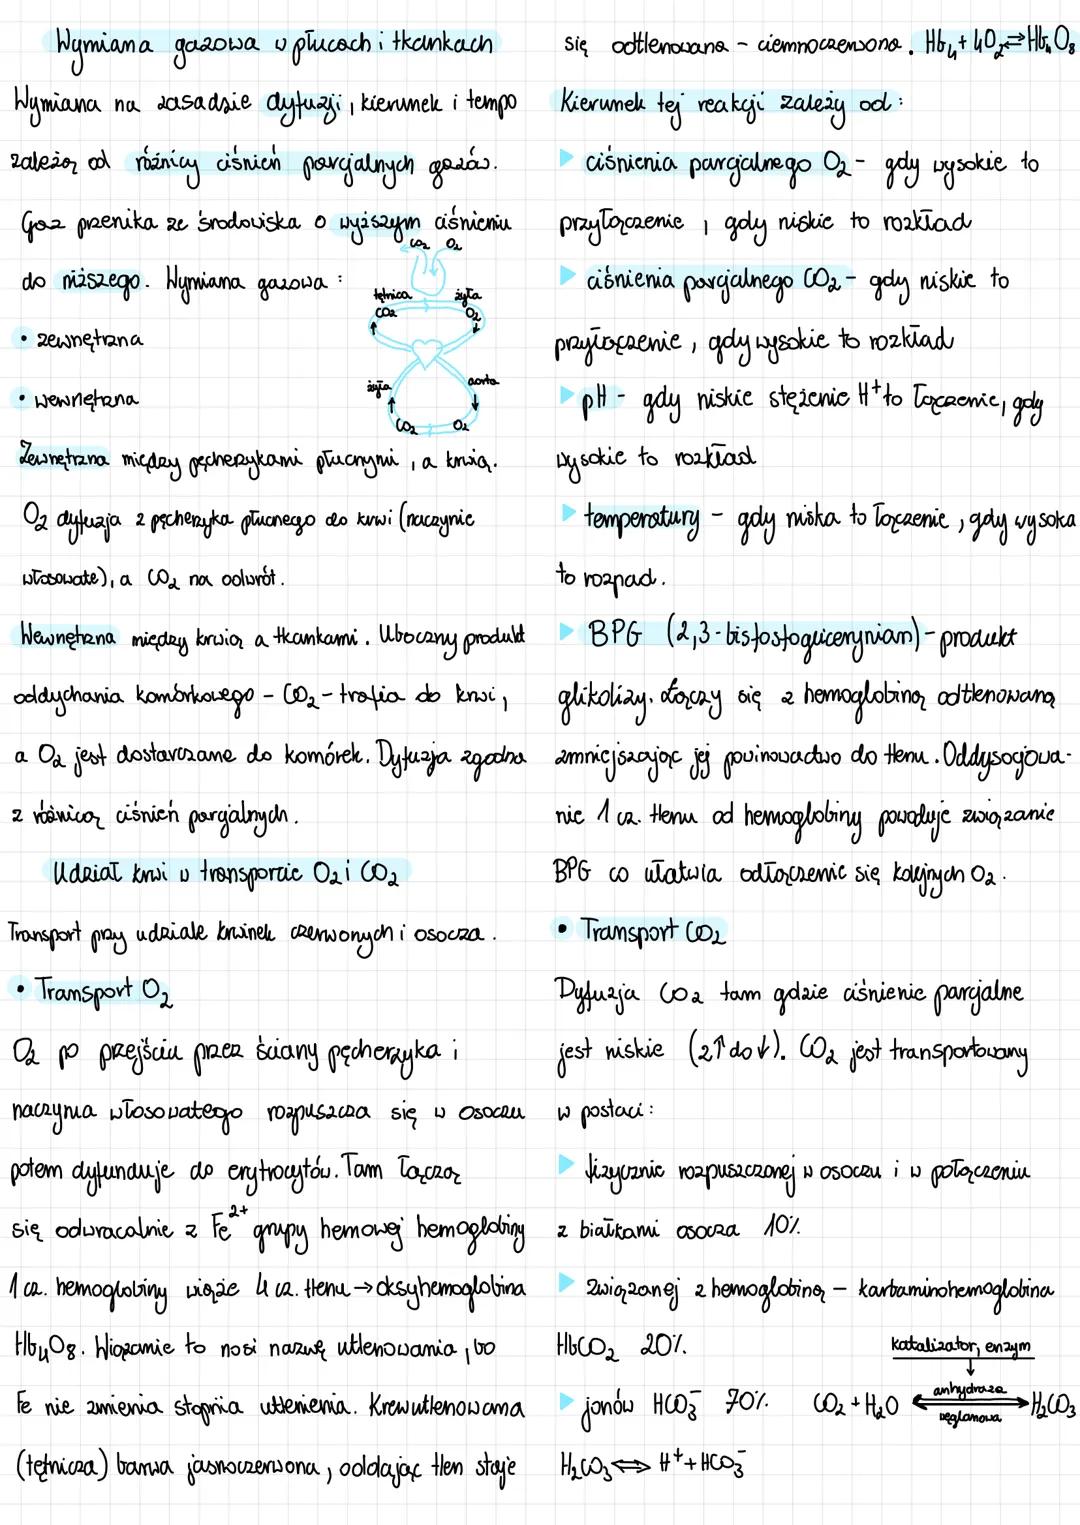 Wymiana gazowa w płucach i tkankach
Wymiana na zasadzie dyfuzji, kierunek i tempo
zależą od różnicy ciśnień parcjalnych gazów.
Gaz przenika ze środowiska o wyższym ciśnieniu
do niższego. Wymiana gazowa:
• zewnętrzna
• wewnętrzna
CO2 O2
tętnica żyła
CO2 O2
żyła aorta
CO2 O2
Zewnętrzna między pęcherzykami płucnymi, a krwią.
O2 dyfuzja z pęcherzyka płucnego do krwi (naczynie
włosowate), a CO2 na odwrót.
Wewnętrzna między krwią a tkankami. Uboczny produkt
oddychania komórkowego - CO2 - trafia do krwi,
a O2 jest dostarczane do komórek. Dyfuzja zgodna
z różnicą ciśnień parcjalnych.
Udział krwi w transporcie O2 i CO2
Transport przy udziale krwinek czerwonych i osocza.
• Transport O2
O2 po przejściu przez ściany pęcherzyka i
naczynia włosowatego rozpuszcza się w osoczu
potem dyfunduje do erytrocytów. Tam łączą
się odwracalnie z Fe2+ grupy hemowej hemoglobiny
1 cz. hemoglobiny wiąże 4 cz. tlenu → oksyhemoglobina
Hb4O8. Wiązanie to nosi nazwę utlenowania, bo
Fe nie zmienia stopnia utlenienia. Krew utlenowana
(tętnicza) barwa jasnoczerwona, oddając tlen staje
się odtlenowana - ciemnoczerwona. Hb4 + 4O2 ⇌ Hb4O8
Kierunek tej reakcji zależy od:
▶ ciśnienia parcjalnego O2 - gdy wysokie to
przyłączenie, gdy niskie to rozkład
▶ ciśnienia parcjalnego CO2 - gdy niskie to
przyłączenie, gdy wysokie to rozkład
▶ pH - gdy niskie stężenie H+ to łączenie, gdy
wysokie to rozkład
▶ temperatury - gdy niska to łączenie, gdy wysoka
to rozpad.
▶ BPG (2,3-bisfosfoglicerynian) - produkt
glikolizy. Łączy się z hemoglobiną odtlenowaną
zmniejszając jej powinowadtwo do tlenu. Oddysocjowa-
nie 1 cz. tlenu od hemoglobiny powoduje związanie
BPG co ułatwia odłączenie się kolejnych O2.
• Transport CO2
Dyfuzja CO2 tam gdzie ciśnienie parcjalne
jest niskie (z↑ do ↓). CO2 jest transportowany
w postaci:
▶ fizycznie rozpuszczonej w osoczu i w połączeniu
z białkami osocza 10%
▶ związanej z hemoglobiną - karbaminohemoglobina
HbCO2 20%.
▶ jonów HCO3- 70% CO2 + H2O ⟷ H2CO3
katalizator, enzym
↓
anhydraza
węglanowa
H2CO3 ⟺ H+ + HCO3-